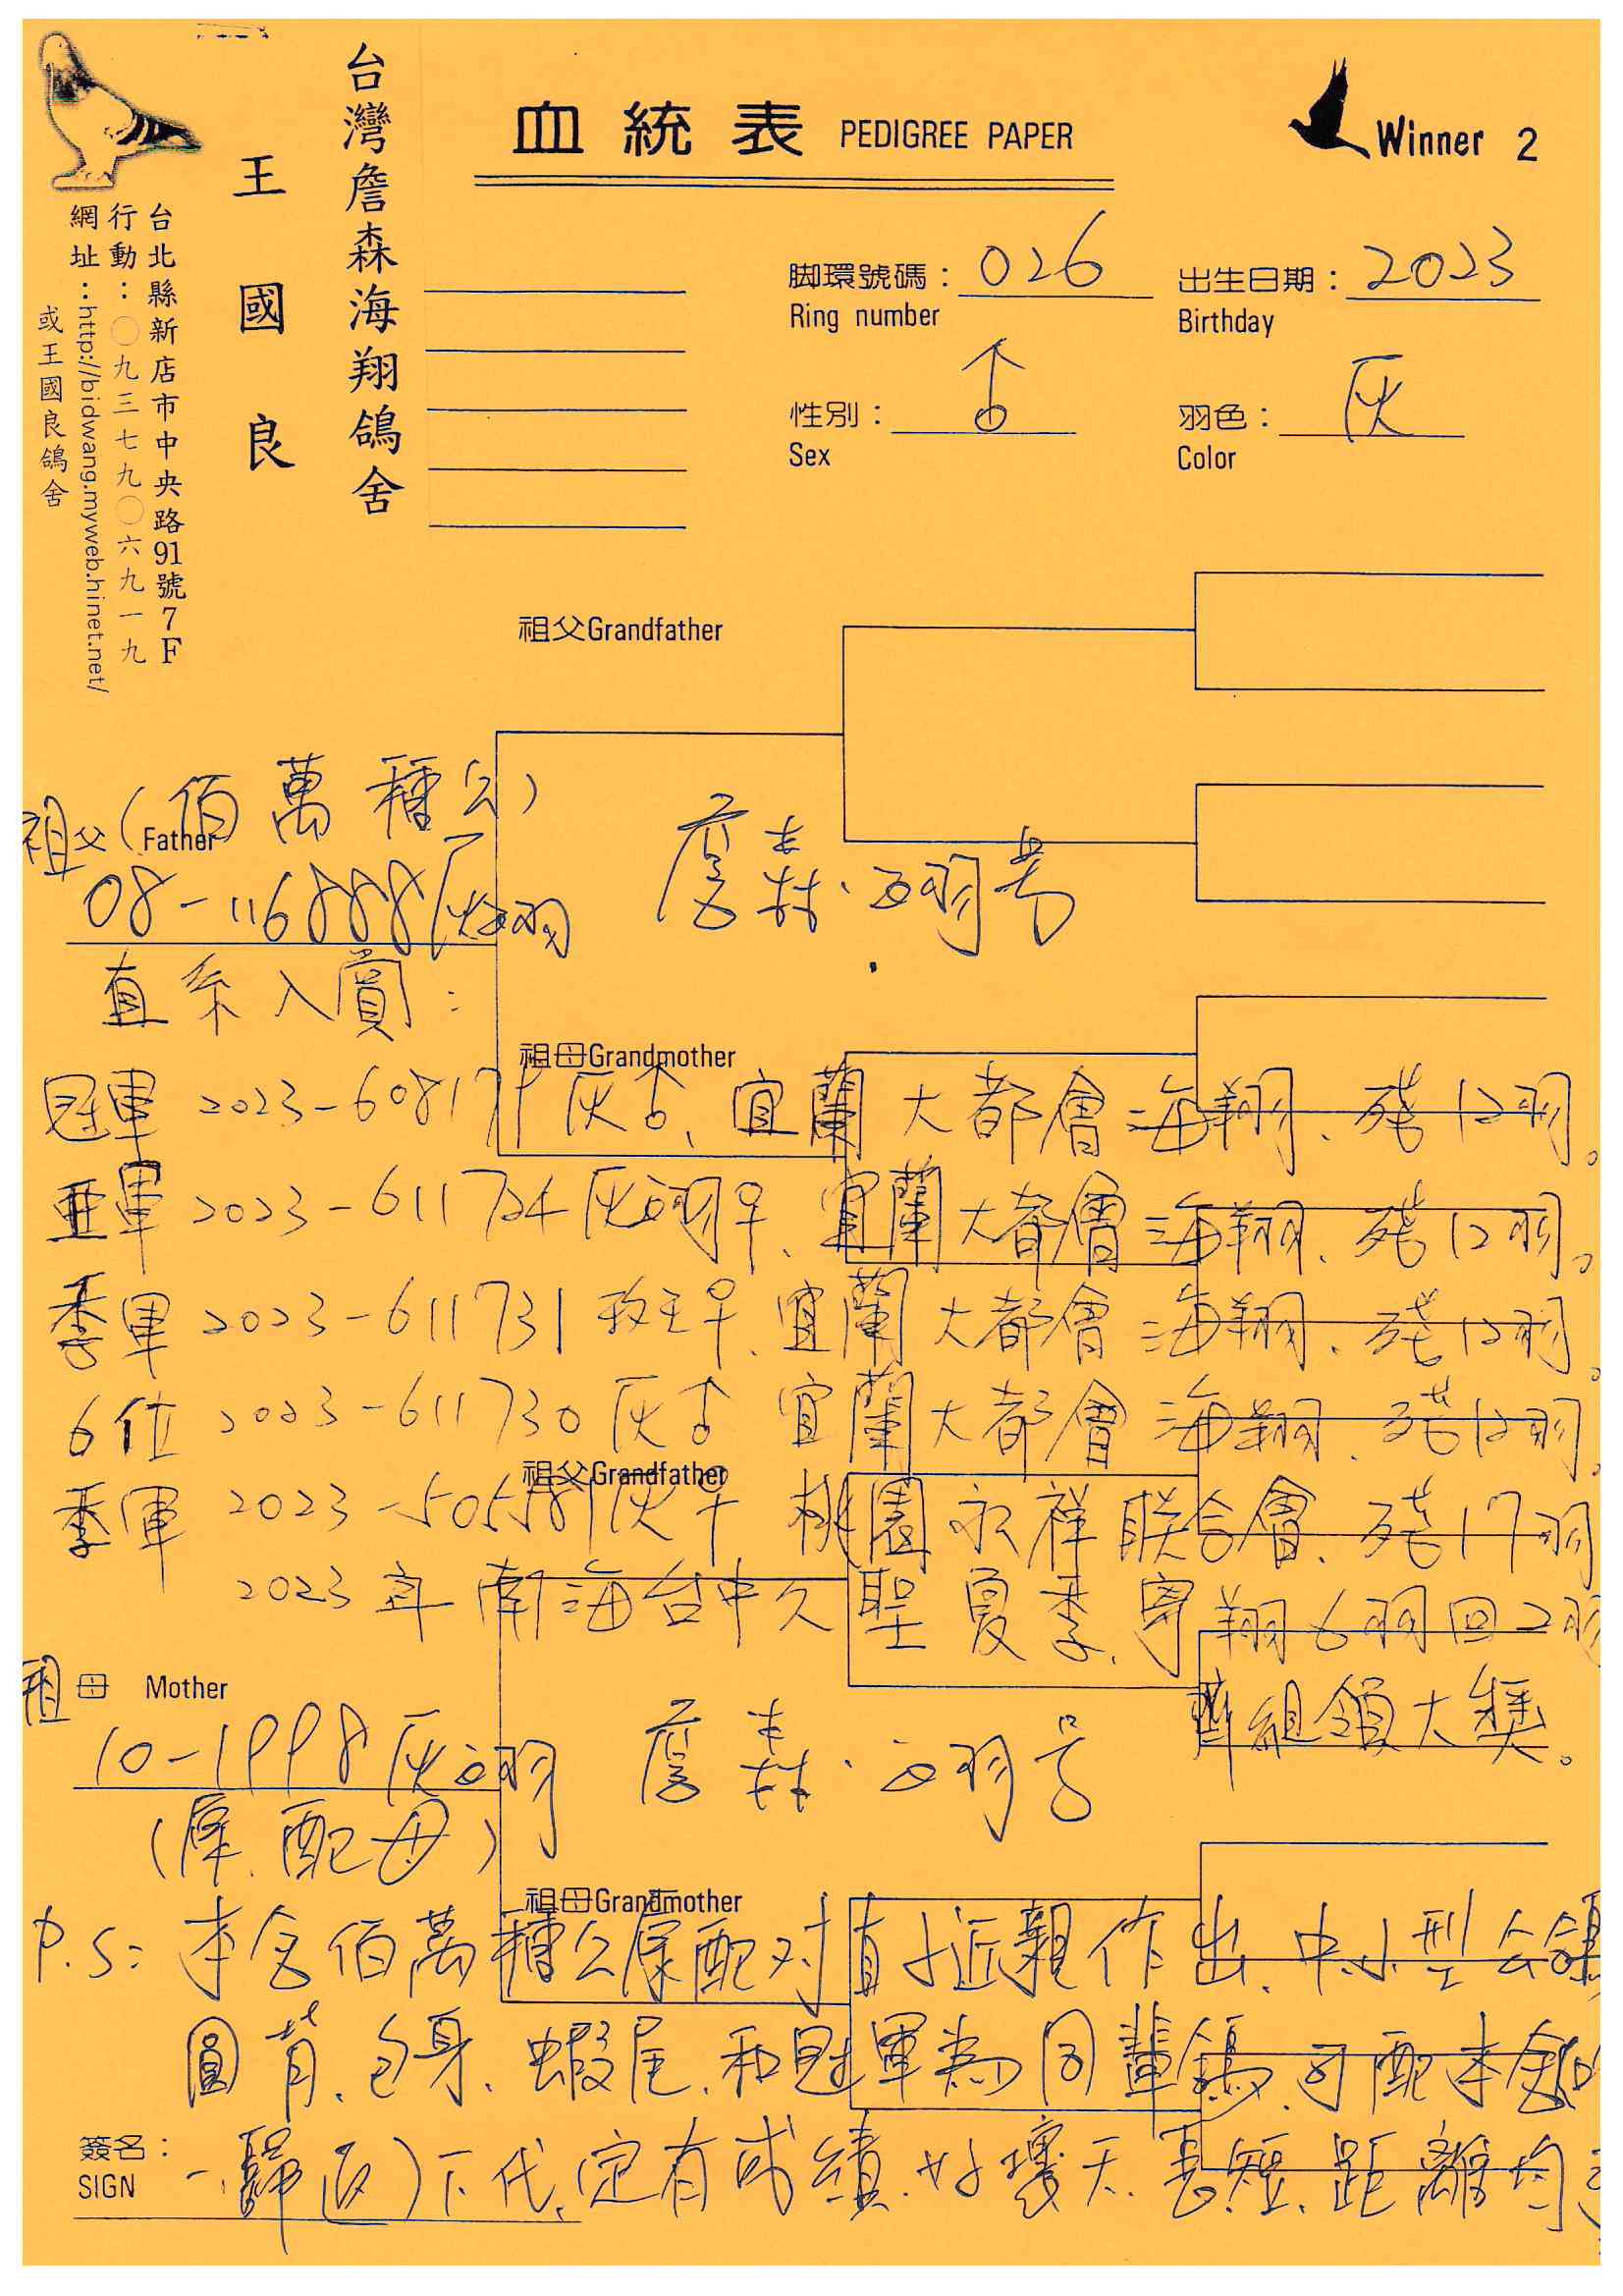 台灣詹森海翔鴿舍
王國良
台北縣新店市中央路91號7F
行動：〇九三七九〇六九一九
網址：http://bidwang.myweb.hinet.net/
或王國良鴿舍
血統表 PEDIGREE PAPER
Winner 2
脚環號碼： 026
Ring number
出生日期： 2023
Birthday
性別： ♂
Sex
羽色： 灰
Color
祖父Grandfather
(佰萬種公)
祖父 Father
08-116888灰白羽
詹森·白羽号
直系入賞：
祖母Grandmother
冠軍 2023-608171灰♂、宜蘭大都會海翔、残12羽。
亜軍 2023-611724灰白羽♀、宜蘭大都會海翔、残12羽。
季軍 2023-611731 ♀、宜蘭大都會海翔、残12羽。
6位 2023-611730灰♂ 宜蘭大都會海翔、残12羽。
祖父Grandfather
季軍 2023-505581灰♀ 桃園永祥联合會、残17羽
2023年南海台中久聖夏季、寄翔6羽回2羽
齊組領大獎。
祖母 Mother
10-1998灰白羽
詹森·白羽号
(原配母)
祖母Grandmother
P.S：本舍佰萬種公原配对直接近親作出、中小型公鴿
圓背、身、蝦尾、和冠軍為同輩鴿、可配本舍
簽名：
SIGN
一歸返)下代、定有成績、好壞天、長短、距離均